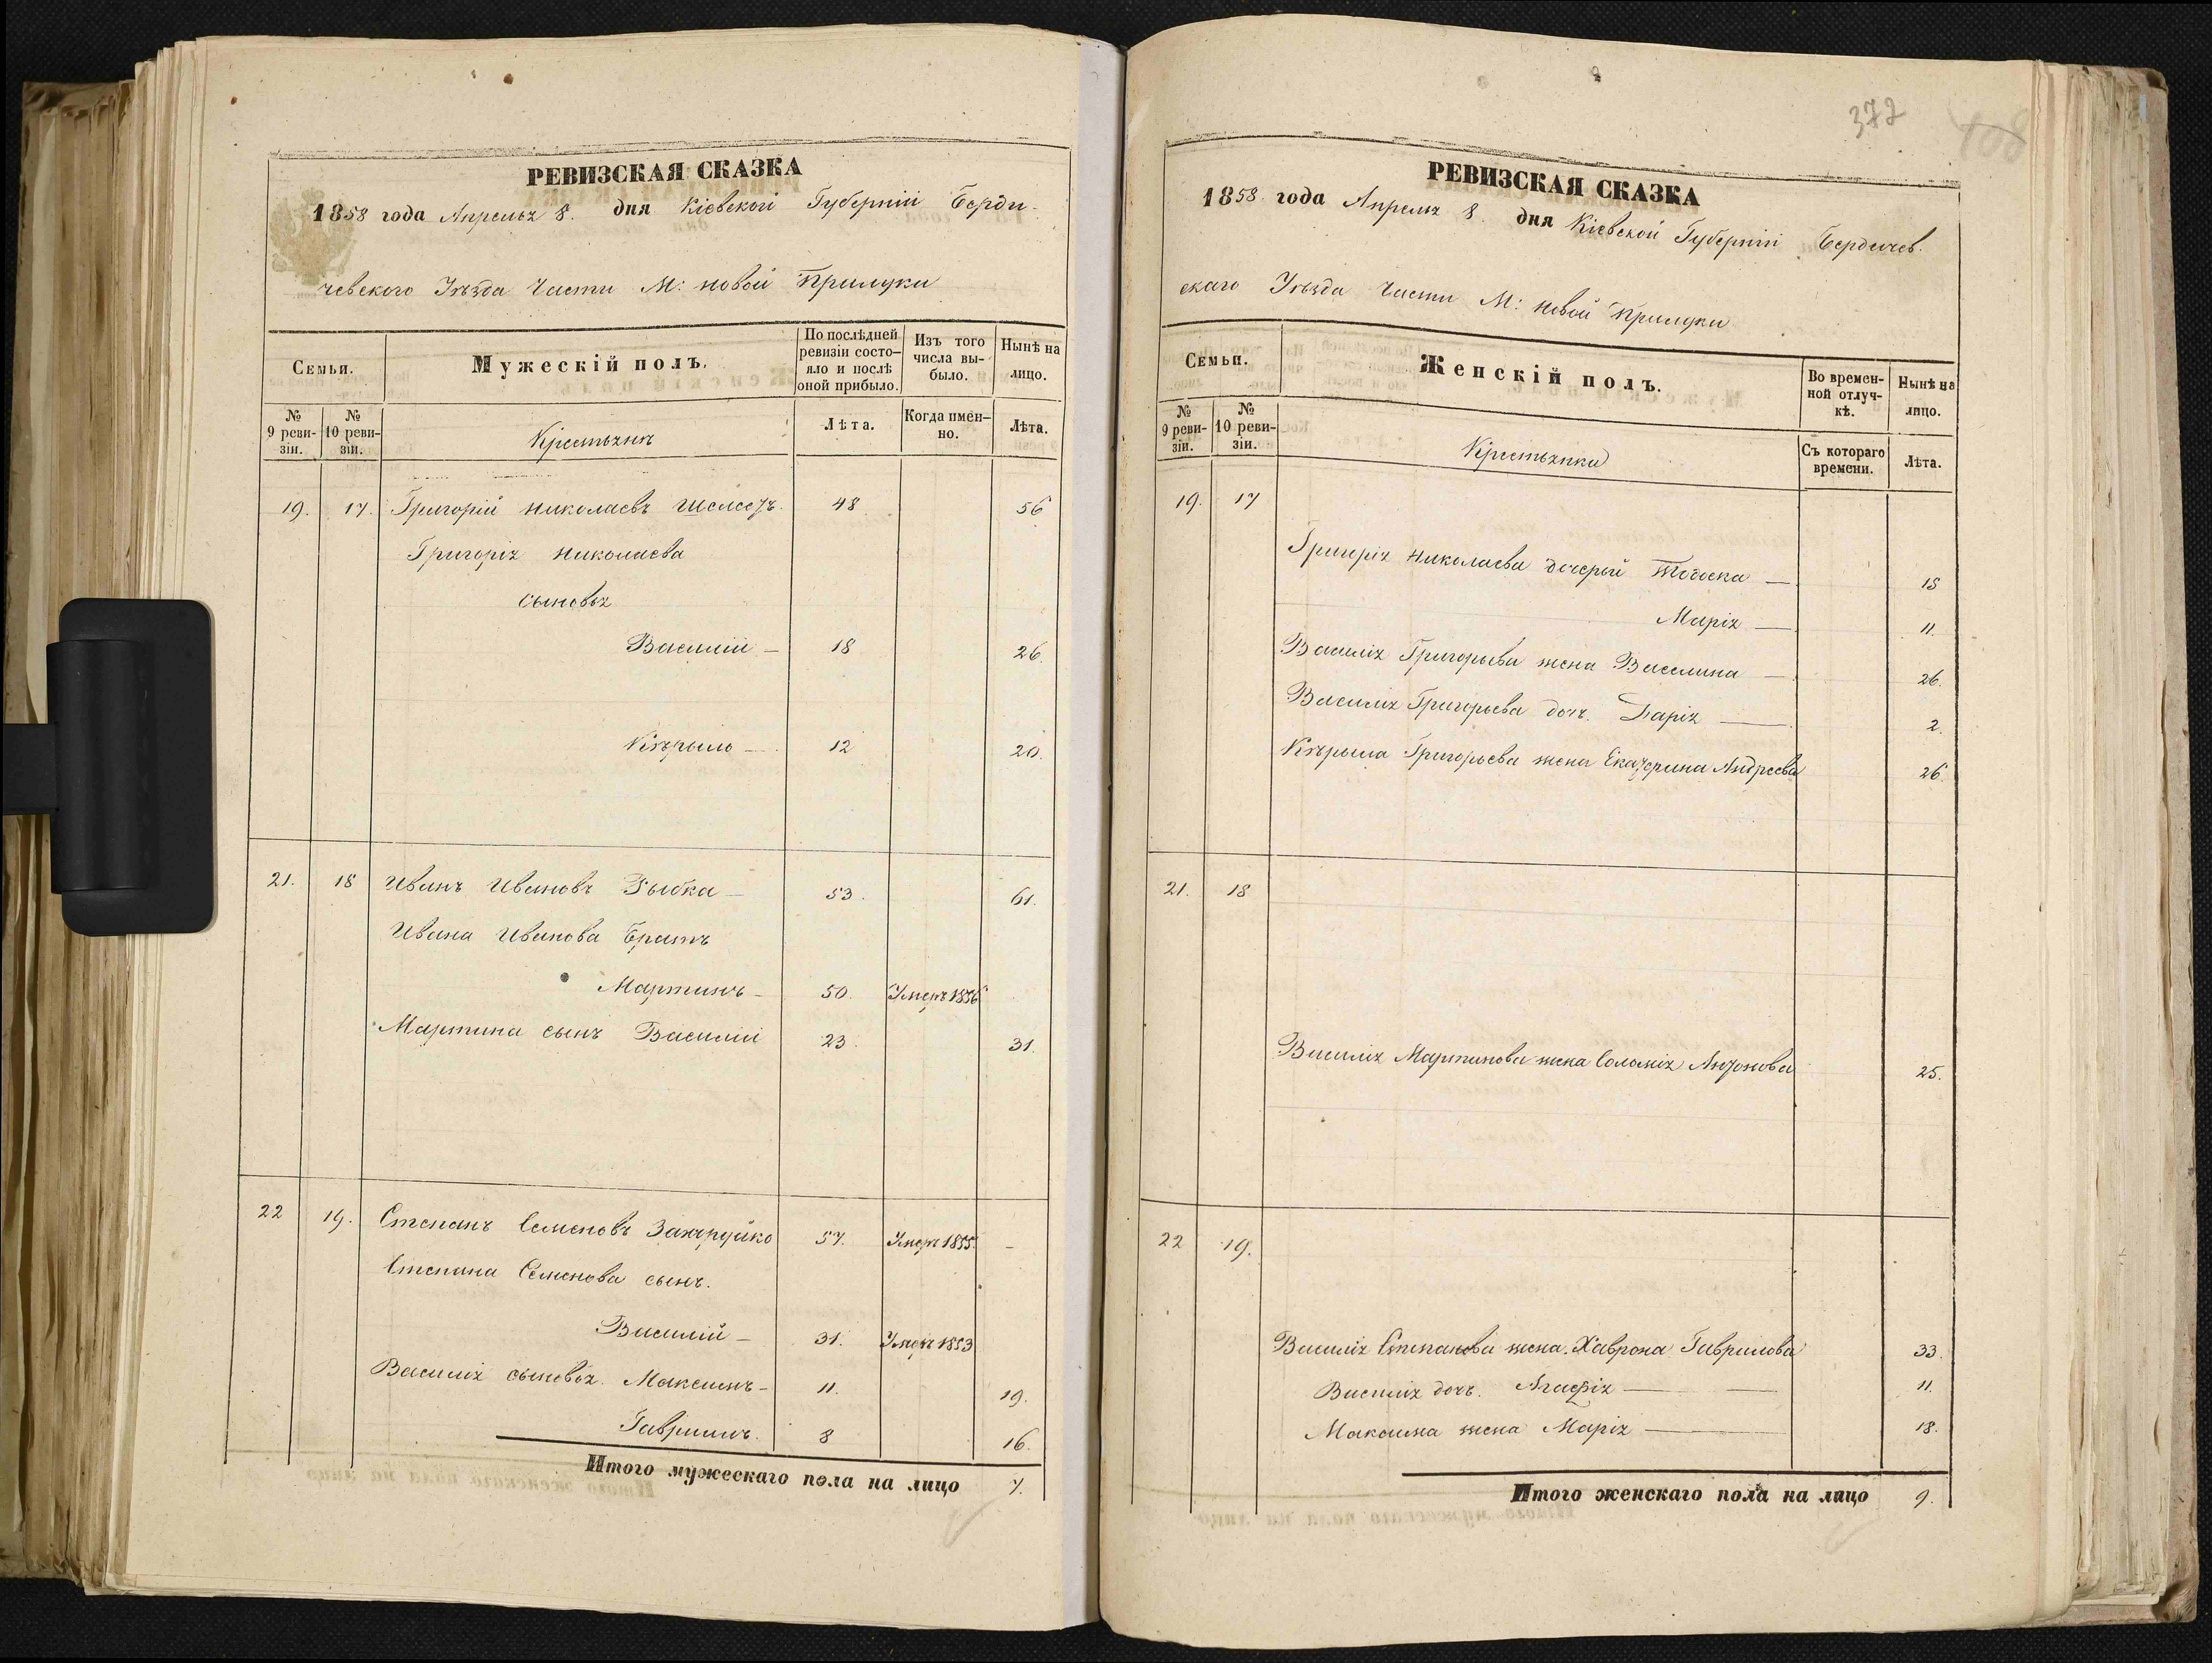 РЕВИЗСКАЯ СКАЗКА
1858 года Апреля 8. дня Кіевской Губерніи Берди-
чевского Уѣзда Части М: Новой Прилуки
Семьи.
Мужескій полъ.
По послѣдней ревизіи состо-яло и послѣ оной прибыло.
Изъ того числа вы-было.
Нынѣ на лицо.
№ 9 реви-зіи.
№ 10 реви-зіи.
Крестьяне
Лѣта.
Когда имен-но.
Лѣта.
19. 17. Григорій Николаевъ 48 56
Григорія Николаева
сыновья
Василій — 18 26.
Кѣрыло — 12 20.
21. 18 Иванъ Ивановъ Рыбка — 53. 61.
Ивана Иванова братъ
Мартинъ — 50. Умеръ 1856
Мартина сынъ Василій 23. 31.
22 19. Степанъ Семеновъ 57. Умеръ 1855. —
Степана Семенова сынъ.
Василій — 31. Умеръ 1853
Василія сыновья. Максимъ — 11. 19.
Гаврыилъ. 8 16.
Итого мужескаго пола на лицо 7.
372
408
РЕВИЗСКАЯ СКАЗКА
1858 года Апреля 8. дня Кіевской Губерніи Бердичев.
скаго Уѣзда Части М: Новой Прилуки
Семьи.
Женскій полъ.
Во времен-ной отлуч-кѣ.
Нынѣ на лицо.
№ 9 реви-зіи.
№ 10 реви-зіи.
Крестьянки
Съ котораго времени.
Лѣта.
19. 17
Григорія Николаева дочерыи — 18
Марія — 11.
Василія Григорьева жена Василина — 26.
Василія Григорьева дочь. Дарія — 2.
Кѣрыла Григорьева жена Екатерина Андреева 26.
21. 18
Василія Мартинова жена Соломія Антонова 25.
22 19.
Василія Степанова жена. Хаврона Гаврилова 33.
Василія дочь. Агафія — — 11.
Максима жена Марія — 18.
Итого женскаго пола на лицо 9.